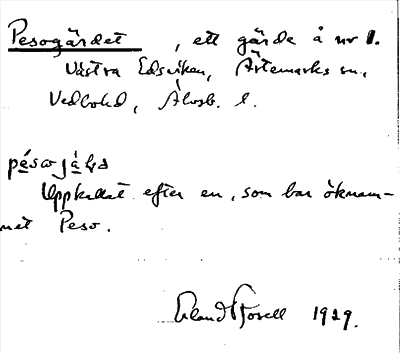 Pesogärdet, ett gärde å nr 1.
Västra Edsviken, Ärtemarks sn,
Vedbo hd, Älvsb. l.
Uppkallat efter en, som bar öknam-
net Peso.
1929.